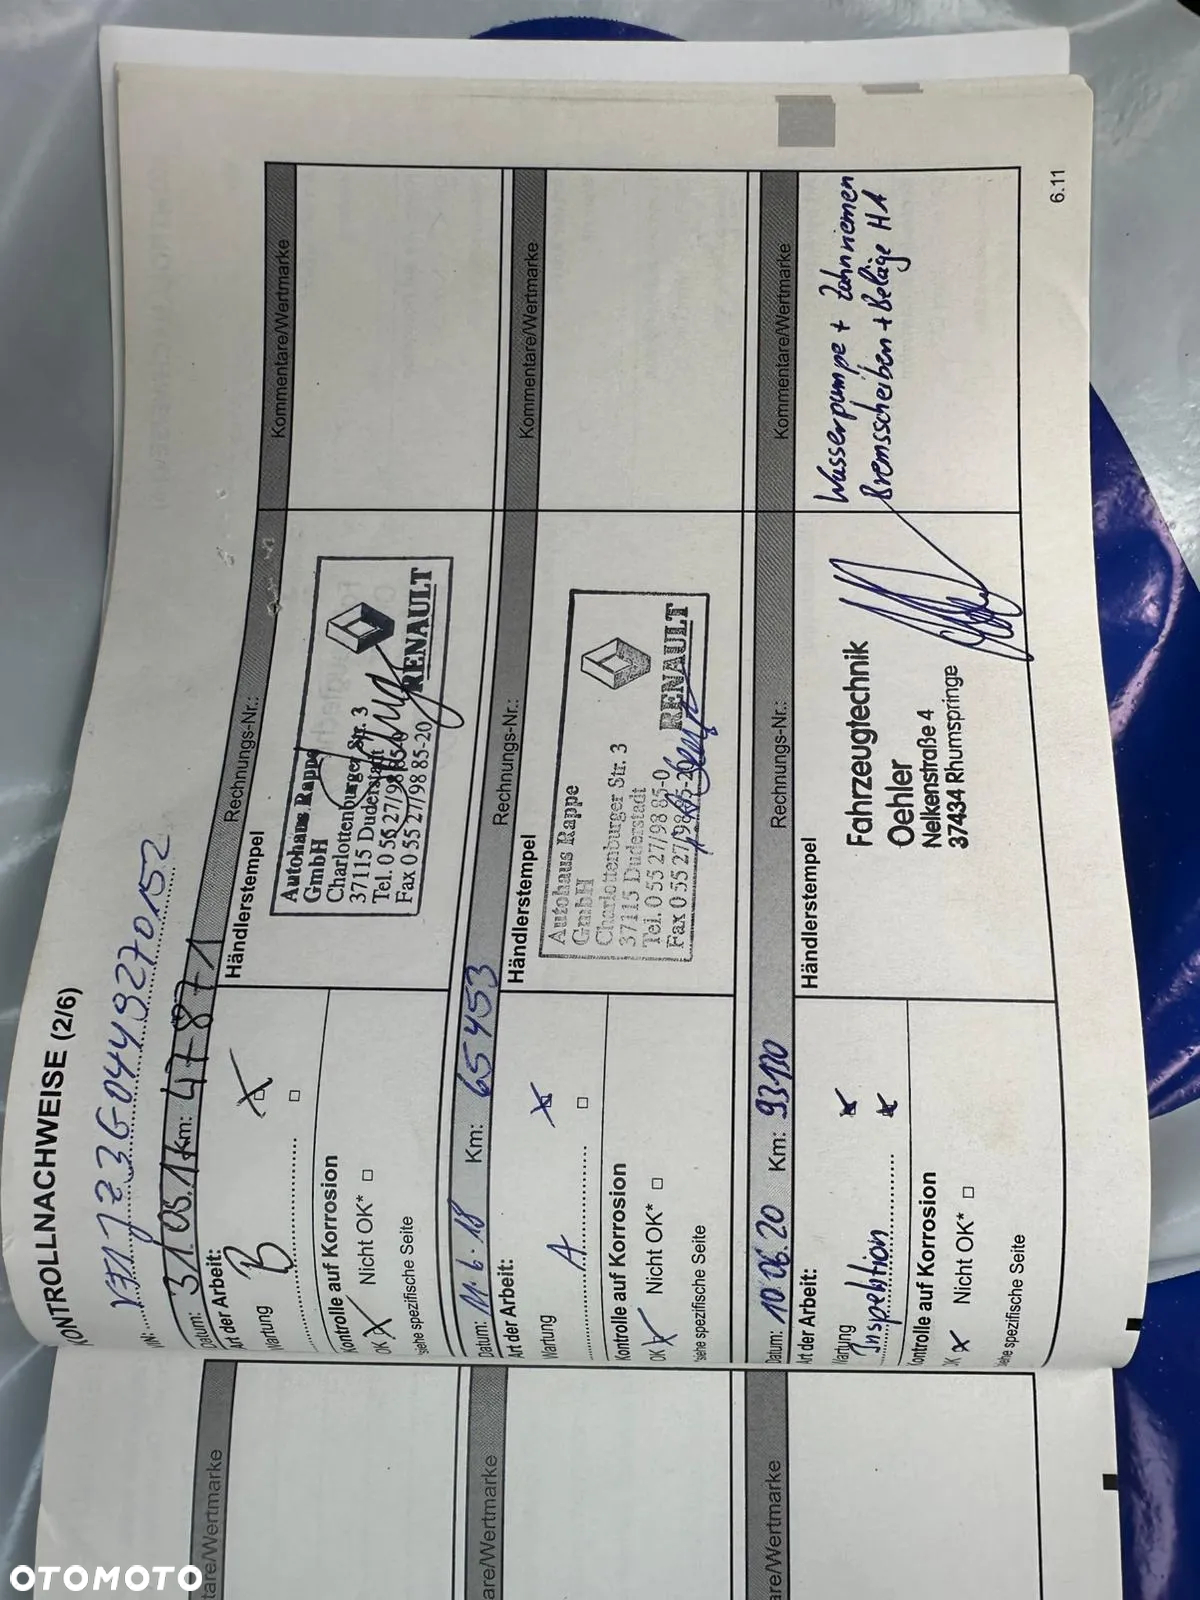 KONTROLLNACHWEISE (2/6)
VIN: VF1JZ3G0449270152
Datum: 31.05.17 Km: 47871 Rechnungs-Nr.: Kommentare/Wertmarke
Art der Arbeit:
Händlerstempel
Wartung B
Autohaus Rappe
GmbH
Charlottenburger Str. 3
37115 Duderstadt
Tel. 0 55 27/98 85-0
Fax 0 55 27/98 85-20
RENAULT
Kontrolle auf Korrosion
OK Nicht OK*
*siehe spezifische Seite
Datum: 11.6.18 Km: 65453 Rechnungs-Nr.: Kommentare/Wertmarke
Art der Arbeit:
Händlerstempel
Wartung A
Autohaus Rappe
GmbH
Charlottenburger Str. 3
37115 Duderstadt
Tel. 0 55 27/98 85-0
Fax 0 55 27/98 85-20
RENAULT
Kontrolle auf Korrosion
OK Nicht OK*
*siehe spezifische Seite
Datum: 10.06.20 Km: 93120 Rechnungs-Nr.: Kommentare/Wertmarke
Art der Arbeit:
Händlerstempel
Wartung
Inspektion
Fahrzeugtechnik
Oehler
Nelkenstraße 4
37434 Rhumspringe
Wasserpumpe + Zahnriemen
Bremsscheiben + Beläge HA
Kontrolle auf Korrosion
OK Nicht OK*
*siehe spezifische Seite
6.11
tare/Wertmarke
are/Wertmarke
tare/Wertmarke
OTOMOTO